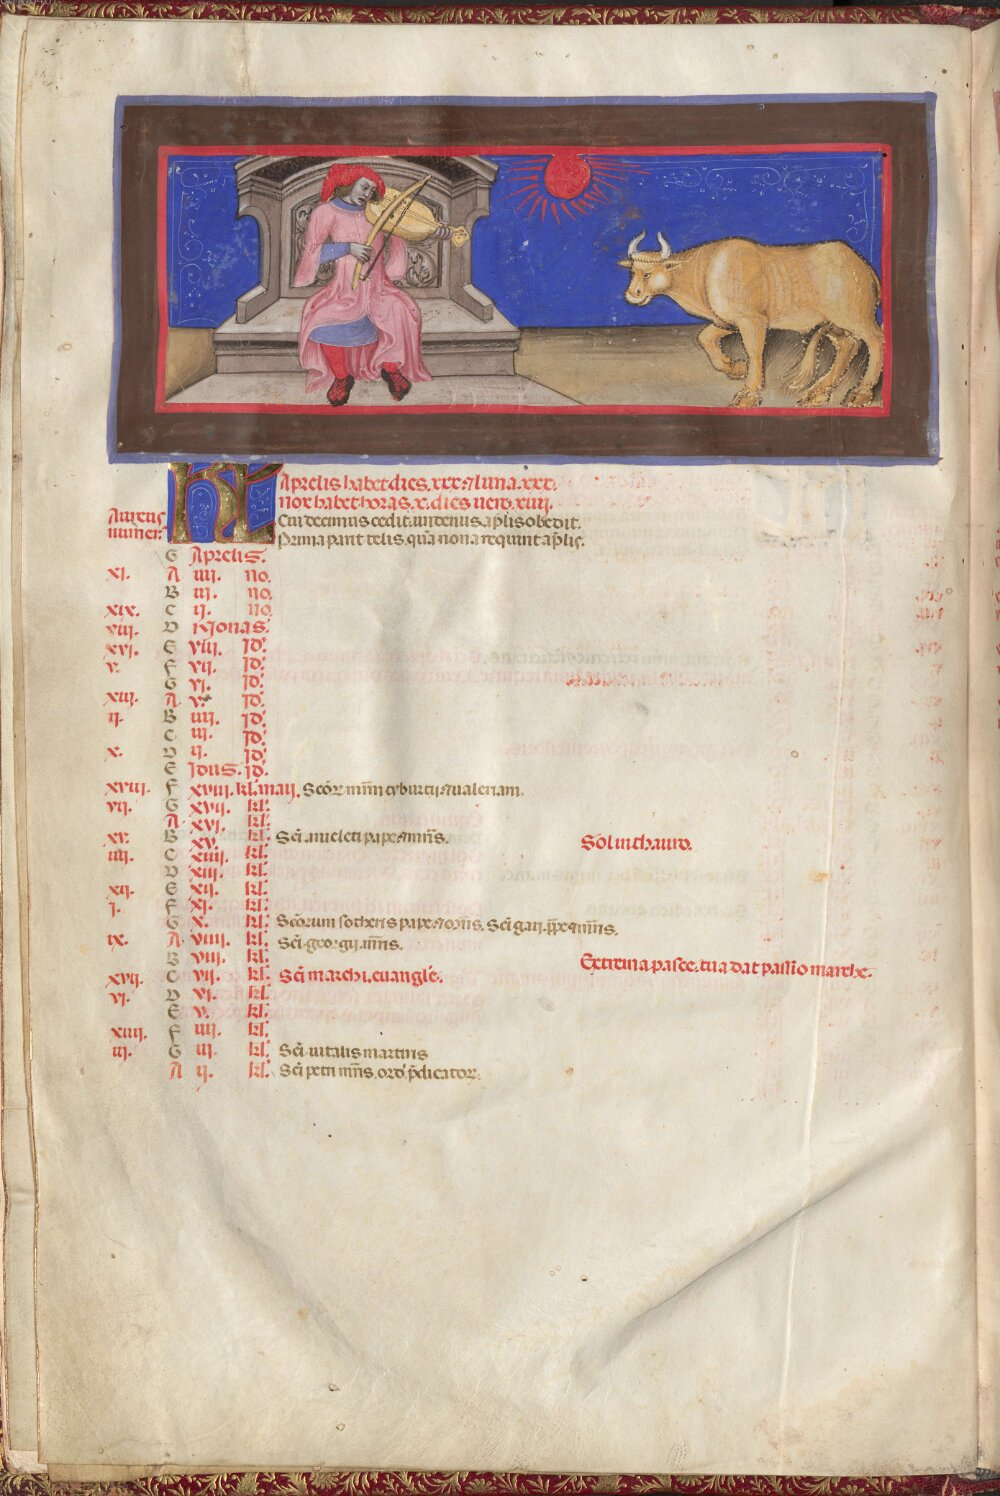 KL Aprelis habet dies. xxx. ⁊ luna. xxx.
Nox habet horas. x. dies uero. xiiij.
Aureus Cui decimus cedit. undenus ap̄lis obedit.
numer. Prima parit telis. qua nona requirit ap̄lis.
G Aprelis.
xi. A iiij. no.
B iij. no.
xix. C ij. no.
viij. D Nonas.
xvi. E viij. Id.
v. F vij. Id.
G vi. Id.
xiij. A v. Id.
ij. B iiij. Id.
C iij. Id.
x. D ij. Id.
E Idus. Id.
xviij. F xviij. kl. maij. Scōr mm̄ tyburtij ⁊ ualeriani.
vij. G xvij. kl.
A xvi. kl.
xv. B xv. kl. Sc̄i. anicleti pape ⁊ mr̄is. Sol in thauro.
iiij. C xiiij. kl.
D xiij. kl.
xij. E xij. kl.
j. F xi. kl.
G x. kl. Scōrum sotheris pape ⁊ mr̄is. Sc̄i gaij. pp̄e ⁊ mr̄is.
ix. A viiij. kl. Sc̄i. georgij. mr̄is.
B viij. kl. Extrema pasce.
xvij. C vij. kl. Sc̄i marchi. euangl̄e.
vi. D vi. kl.
E v. kl.
xiiij. F iiij. kl.
iij. G iij. kl. Sc̄i uitalis martiris
A ij. kl. Sc̄i petri mr̄is. ord̄. p̄dicator.